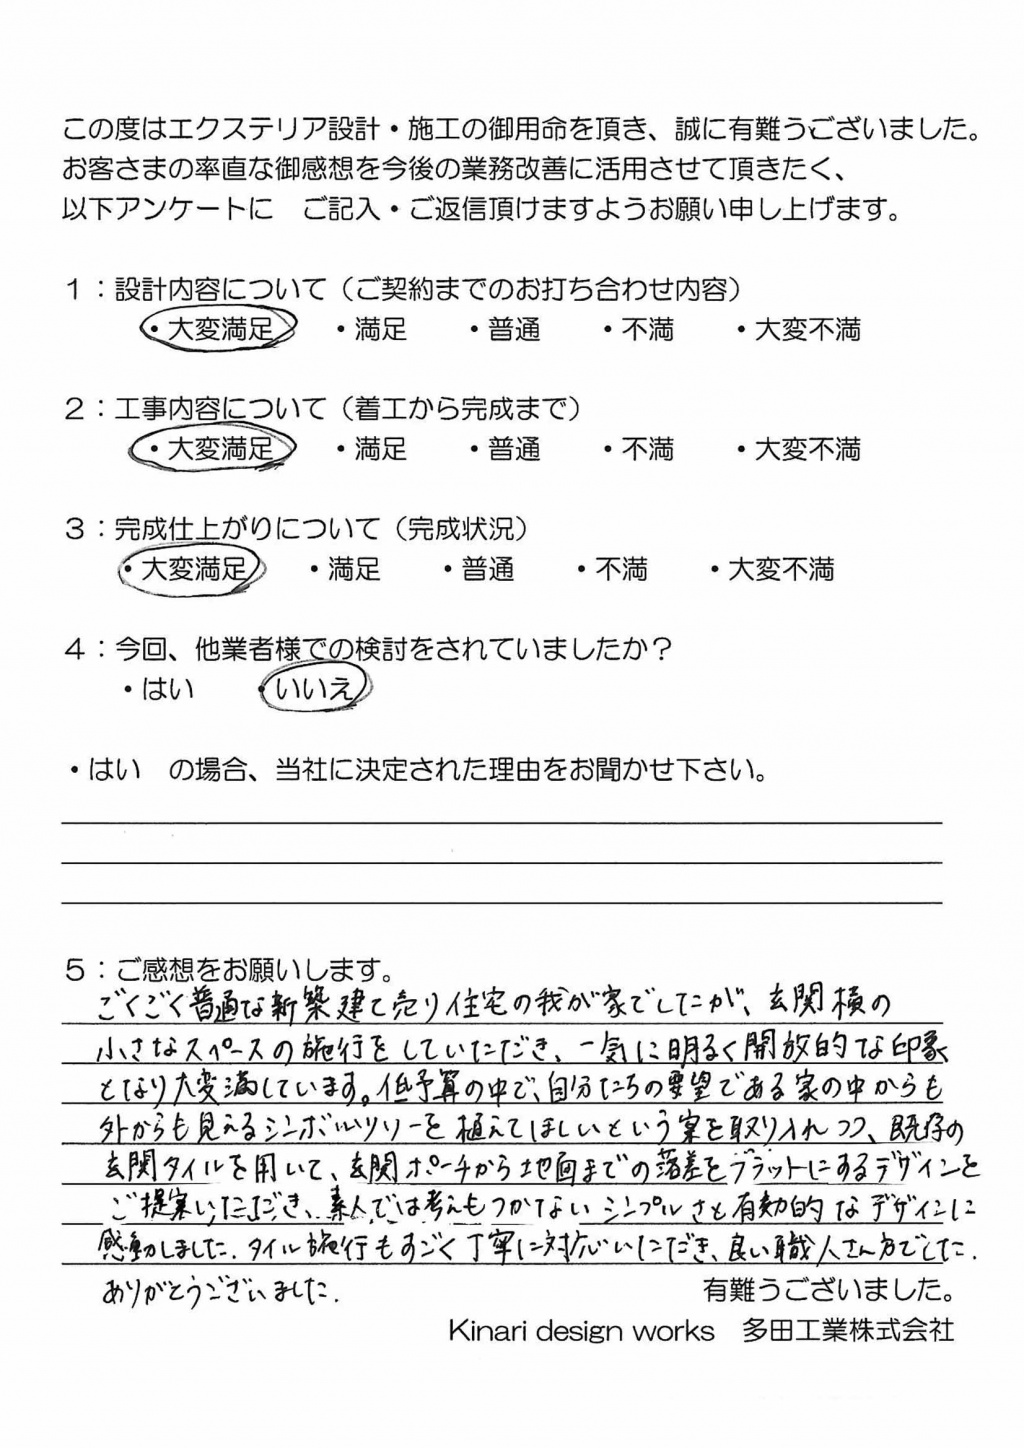 この度はエクステリア設計・施工の御用命を頂き、誠に有難うございました。
お客さまの率直な御感想を今後の業務改善に活用させて頂きたく、
以下アンケートに　ご記入・ご返信頂けますようお願い申し上げます。
１：設計内容について（ご契約までのお打ち合わせ内容）
・大変満足　・満足　・普通　・不満　・大変不満
２：工事内容について（着工から完成まで）
・大変満足　・満足　・普通　・不満　・大変不満
３：完成仕上がりについて（完成状況）
・大変満足　・満足　・普通　・不満　・大変不満
４：今回、他業者様での検討をされていましたか？
・はい　・いいえ
・はい　の場合、当社に決定された理由をお聞かせ下さい。
５：ご感想をお願いします。
ごくごく普通な新築建て売り住宅の我が家でしたが、玄関横の
小さなスペースの施行をしていただき、一気に明るく開放的な印象
となり大変満しています。低予算の中で、自分たちの要望である家の中からも
外からも見えるシンボルツリーを植えてほしいという案を取り入れつつ、既存の
玄関タイルを用いて、玄関ポーチから地面までの落差をフラットにするデザインを
ご提案いただき、素人では考えもつかない シンプルさと有効的なデザインに
感動しました。タイル施行もすごく丁寧に対応いただき、良い職人さん方でした。
ありがとうございました。
有難うございました。
Kinari design works　多田工業株式会社